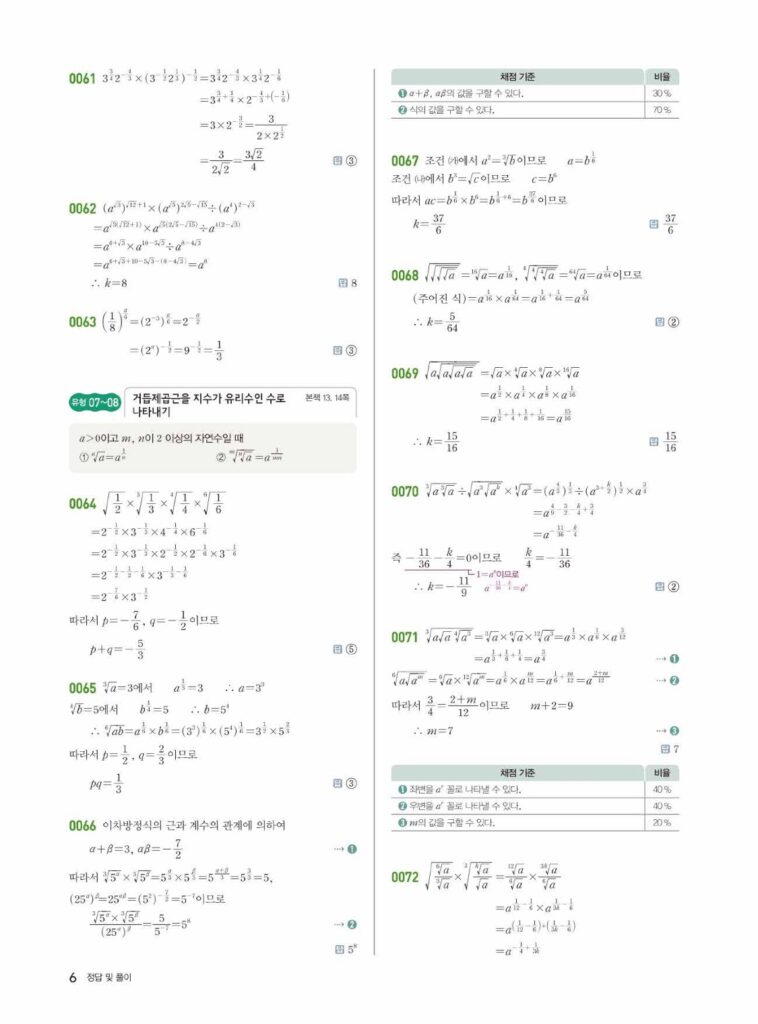 0061 3^{3/4}2^{-4/3}×(3^{-1/2}2^{1/3})^{-1/2}=3^{3/4}2^{-4/3}×3^{1/4}2^{-1/6}
=3^{3/4+1/4}×2^{-4/3+(-1/6)}
=3×2^{-3/2}=3/(2×2^{1/2})
=3/(2√2)=3√2/4 답 ③
0062 (a^{√3})^{√12+1}×(a^{√5})^{2√5-√15}÷(a^4)^{2-√3}
=a^{√3(√12+1)}×a^{√5(2√5-√15)}÷a^{4(2-√3)}
=a^{6+√3}×a^{10-5√3}÷a^{8-4√3}
=a^{6+√3+10-5√3-(8-4√3)}=a^8
∴ k=8 답 8
0063 (1/8)^{a/6}=(2^{-3})^{a/6}=2^{-a/2}
=(2^a)^{-1/2}=9^{-1/2}=1/3 답 ③
유형 07~08 거듭제곱근을 지수가 유리수인 수로 나타내기 본책 13, 14쪽
a>0이고 m, n이 2 이상의 자연수일 때
① ⁿ√a=a^{1/n} ② ᵐ√(ⁿ√a)=a^{1/mn}
0064 √(1/2)×³√(1/3)×⁴√(1/4)×⁶√(1/6)
=2^{-1/2}×3^{-1/3}×4^{-1/4}×6^{-1/6}
=2^{-1/2}×3^{-1/3}×2^{-1/2}×2^{-1/6}×3^{-1/6}
=2^{-1/2-1/2-1/6}×3^{-1/3-1/6}
=2^{-7/6}×3^{-1/2}
따라서 p=-7/6, q=-1/2이므로
p+q=-5/3 답 ⑤
0065 ³√a=3에서 a^{1/3}=3 ∴ a=3³
⁴√b=5에서 b^{1/4}=5 ∴ b=5⁴
∴ ⁶√(ab)=a^{1/6}×b^{1/6}=(3³)^{1/6}×(5⁴)^{1/6}=3^{1/2}×5^{2/3}
따라서 p=1/2, q=2/3이므로
pq=1/3 답 ③
0066 이차방정식의 근과 계수의 관계에 의하여
α+β=3, αβ=-7/2 ⋯ ❶
따라서 ³√(5^α)×³√(5^β)=5^{α/3}×5^{β/3}=5^{(α+β)/3}=5^{3/3}=5,
(25^α)^β=25^{αβ}=(5²)^{-7/2}=5^{-7}이므로
(³√(5^α)×³√(5^β))/(25^α)^β=5/5^{-7}=5^8 ⋯ ❷
답 5^8
6 정답 및 풀이
채점 기준 비율
❶ α+β, αβ의 값을 구할 수 있다. 30 %
❷ 식의 값을 구할 수 있다. 70 %
0067 조건 ㈎에서 a²=³√b이므로 a=b^{1/6}
조건 ㈏에서 b³=√c이므로 c=b^6
따라서 ac=b^{1/6}×b^6=b^{1/6+6}=b^{37/6}이므로
k=37/6 답 37/6
0068 √(√(√(√a)))=¹⁶√a=a^{1/16}, ⁴√(⁴√(⁴√a))=⁶⁴√a=a^{1/64}이므로
(주어진 식)=a^{1/16}×a^{1/64}=a^{1/16+1/64}=a^{5/64}
∴ k=5/64 답 ②
0069 √(a√(a√(a√a)))=√a×⁴√a×⁸√a×¹⁶√a
=a^{1/2}×a^{1/4}×a^{1/8}×a^{1/16}
=a^{1/2+1/4+1/8+1/16}=a^{15/16}
∴ k=15/16 답 15/16
0070 ³√(a ³√a)÷√(a³√(a^k))×⁴√(a³)=(a^{4/3})^{1/3}÷(a^{3+k/2})^{1/2}×a^{3/4}
=a^{4/9-3/2-k/4+3/4}
=a^{-11/36-k/4}
즉 -11/36-k/4=0이므로 k/4=-11/36
1=a⁰이므로
a^{-11/36-k/4}=a⁰
∴ k=-11/9 답 ②
0071 ³√(a√(a ⁴√(a³)))=³√a×⁶√a×¹²√(a³)=a^{1/3}×a^{1/6}×a^{3/12}
=a^{1/3+1/6+1/4}=a^{3/4} ⋯ ❶
⁶√(a√(a^m))=⁶√a×¹²√(a^m)=a^{1/6}×a^{m/12}=a^{1/6+m/12}=a^{(2+m)/12} ⋯ ❷
따라서 3/4=(2+m)/12이므로 m+2=9
∴ m=7 ⋯ ❸
답 7
채점 기준 비율
❶ 좌변을 a^r 꼴로 나타낼 수 있다. 40 %
❷ 우변을 a^r 꼴로 나타낼 수 있다. 40 %
❸ m의 값을 구할 수 있다. 20 %
0072 √(⁶√a/³√a)×³√(ᵏ√a/√a)=¹²√a/⁶√a×³ᵏ√a/⁶√a
=a^{1/12-1/6}×a^{1/3k-1/6}
=a^{(1/12-1/6)+(1/3k-1/6)}
=a^{-1/4+1/3k}